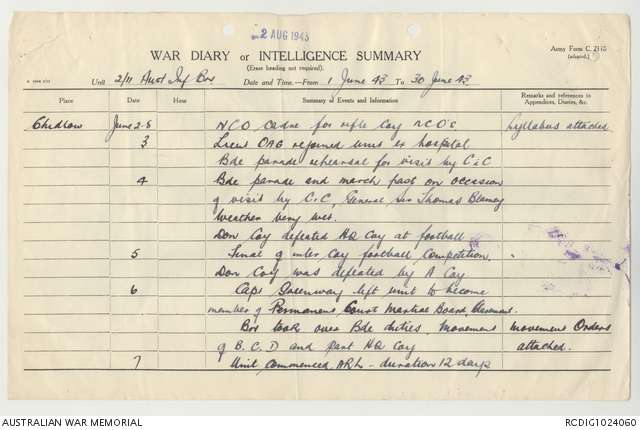 2 AUG 1943
WAR DIARY or INTELLIGENCE SUMMARY
Army Form C. 2118
(adapted.)
(Erase heading not required).
Unit 2/11 Aust Inf Bn Date and Time.—From 1 June 43 To 30 June 43
Place Date Hour Summary of Events and Information Remarks and references to Appendices, Diaries, &c.
Chidlow June 2-8 NCO Cadre for rifle Coy NCO's Syllabus attached
3 Lieut rejoined unit ex hospital
Bde parade rehearsal for visit by C in C
4 Bde parade and march past on occasion
of visit by C in C, General Sir Thomas Blamey
Weather very wet.
Don Coy defeated HQ Coy at football
5 Final of inter Coy football competition.
Don Coy was defeated by A Coy
6 Capt Greenway left unit to become
member of Permanent Court Martial Board
Bn took over Bde duties. Movement Movement Orders
of B. C. D and part HQ Coy attached.
7 Unit commenced - duration 12 days
AUSTRALIAN WAR MEMORIAL RCDIG1024060